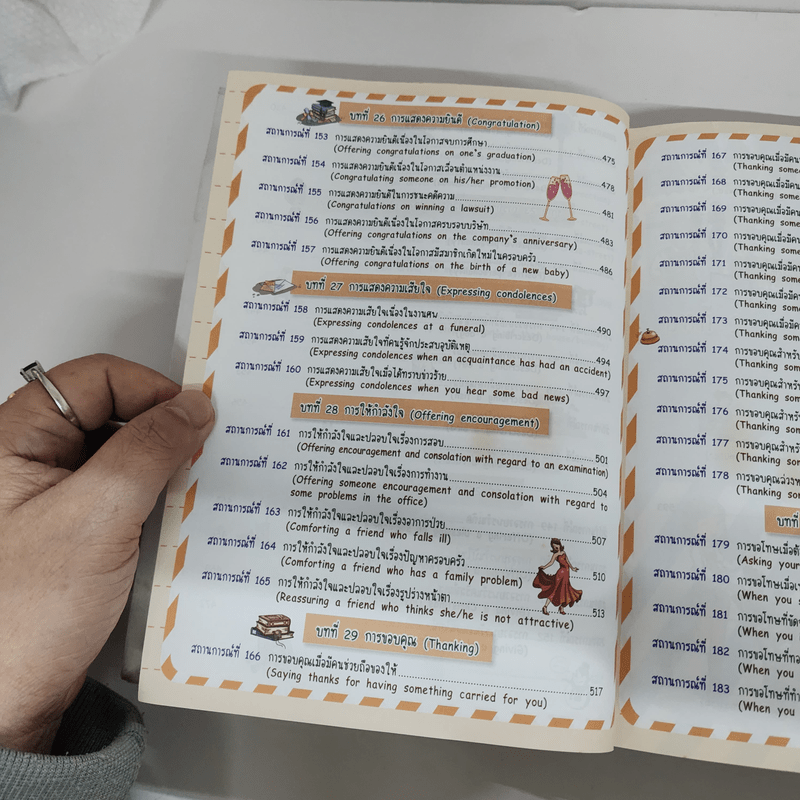 บทที่ 26 การแสดงความยินดี (Congratulation)
สถานการณ์ที่ 153 การแสดงความยินดีเนื่องในโอกาสจบการศึกษา 475
(Offering congratulations on one's graduation)
สถานการณ์ที่ 154 การแสดงความยินดีเนื่องในโอกาสเลื่อนตำแหน่งงาน 478
(Congratulating someone on his/her promotion)
สถานการณ์ที่ 155 การแสดงความยินดีในการชนะคดีความ 481
(Congratulations on winning a lawsuit)
สถานการณ์ที่ 156 การแสดงความยินดีเนื่องในโอกาสครบรอบบริษัท 483
(Offering congratulations on the company's anniversary)
สถานการณ์ที่ 157 การแสดงความยินดีเนื่องในโอกาสมีสมาชิกเกิดใหม่ในครอบครัว 486
(Offering congratulations on the birth of a new baby)
บทที่ 27 การแสดงความเสียใจ (Expressing condolences)
สถานการณ์ที่ 158 การแสดงความเสียใจเนื่องในงานศพ 490
(Expressing condolences at a funeral)
สถานการณ์ที่ 159 การแสดงความเสียใจที่คนรู้จักประสบอุบัติเหตุ 494
(Expressing condolences when an acquaintance has had an accident)
สถานการณ์ที่ 160 การแสดงความเสียใจเมื่อได้ทราบข่าวร้าย 497
(Expressing condolences when you hear some bad news)
บทที่ 28 การให้กำลังใจ (Offering encouragement)
สถานการณ์ที่ 161 การให้กำลังใจและปลอบใจเรื่องการสอบ 501
(Offering encouragement and consolation with regard to an examination)
สถานการณ์ที่ 162 การให้กำลังใจและปลอบใจเรื่องการทำงาน 504
(Offering someone encouragement and consolation with regard to
some problems in the office)
สถานการณ์ที่ 163 การให้กำลังใจและปลอบใจเรื่องอาการป่วย 507
(Comforting a friend who falls ill)
สถานการณ์ที่ 164 การให้กำลังใจและปลอบใจเรื่องปัญหาครอบครัว 510
(Comforting a friend who has a family problem)
สถานการณ์ที่ 165 การให้กำลังใจและปลอบใจเรื่องรูปร่างหน้าตา 513
(Reassuring a friend who thinks she/he is not attractive)
บทที่ 29 การขอบคุณ (Thanking)
สถานการณ์ที่ 166 การขอบคุณเมื่อมีคนช่วยถือของให้ 517
(Saying thanks for having something carried for you)
สถานการณ์ที่ 167 การขอบคุณเมื่อมีคน
(Thanking some
สถานการณ์ที่ 168 การขอบคุณเมื่อมีคน
(Thanking some
สถานการณ์ที่ 169 การขอบคุณเมื่อมีคน
(Thanking some
สถานการณ์ที่ 170 การขอบคุณเมื่อมีคน
(Thanking some
สถานการณ์ที่ 171 การขอบคุณเมื่อมีคน
(Thanking some
สถานการณ์ที่ 172 การขอบคุณเมื่อมีคน
(Thanking some
สถานการณ์ที่ 173 การขอบคุณเมื่อมีคน
(Thanking some
สถานการณ์ที่ 174 การขอบคุณสำหรับ
(Thanking some
สถานการณ์ที่ 175 การขอบคุณสำหรับ
(Thanking some
สถานการณ์ที่ 176 การขอบคุณสำหรับ
(Thanking some
สถานการณ์ที่ 177 การขอบคุณสำหรับ
(Thanking some
สถานการณ์ที่ 178 การขอบคุณล่วงห
(Thanking some
บทที่
สถานการณ์ที่ 179 การขอโทษเมื่อตั
(Asking your
สถานการณ์ที่ 180 การขอโทษเมื่อเ
(When you s
สถานการณ์ที่ 181 การขอโทษที่ขัดจ
(When you
สถานการณ์ที่ 182 การขอโทษที่ทอ
(When you
สถานการณ์ที่ 183 การขอโทษที่ทำ
(When you